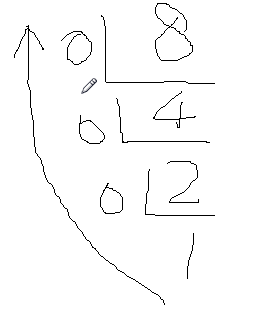 0 8
0 4
0 2
1